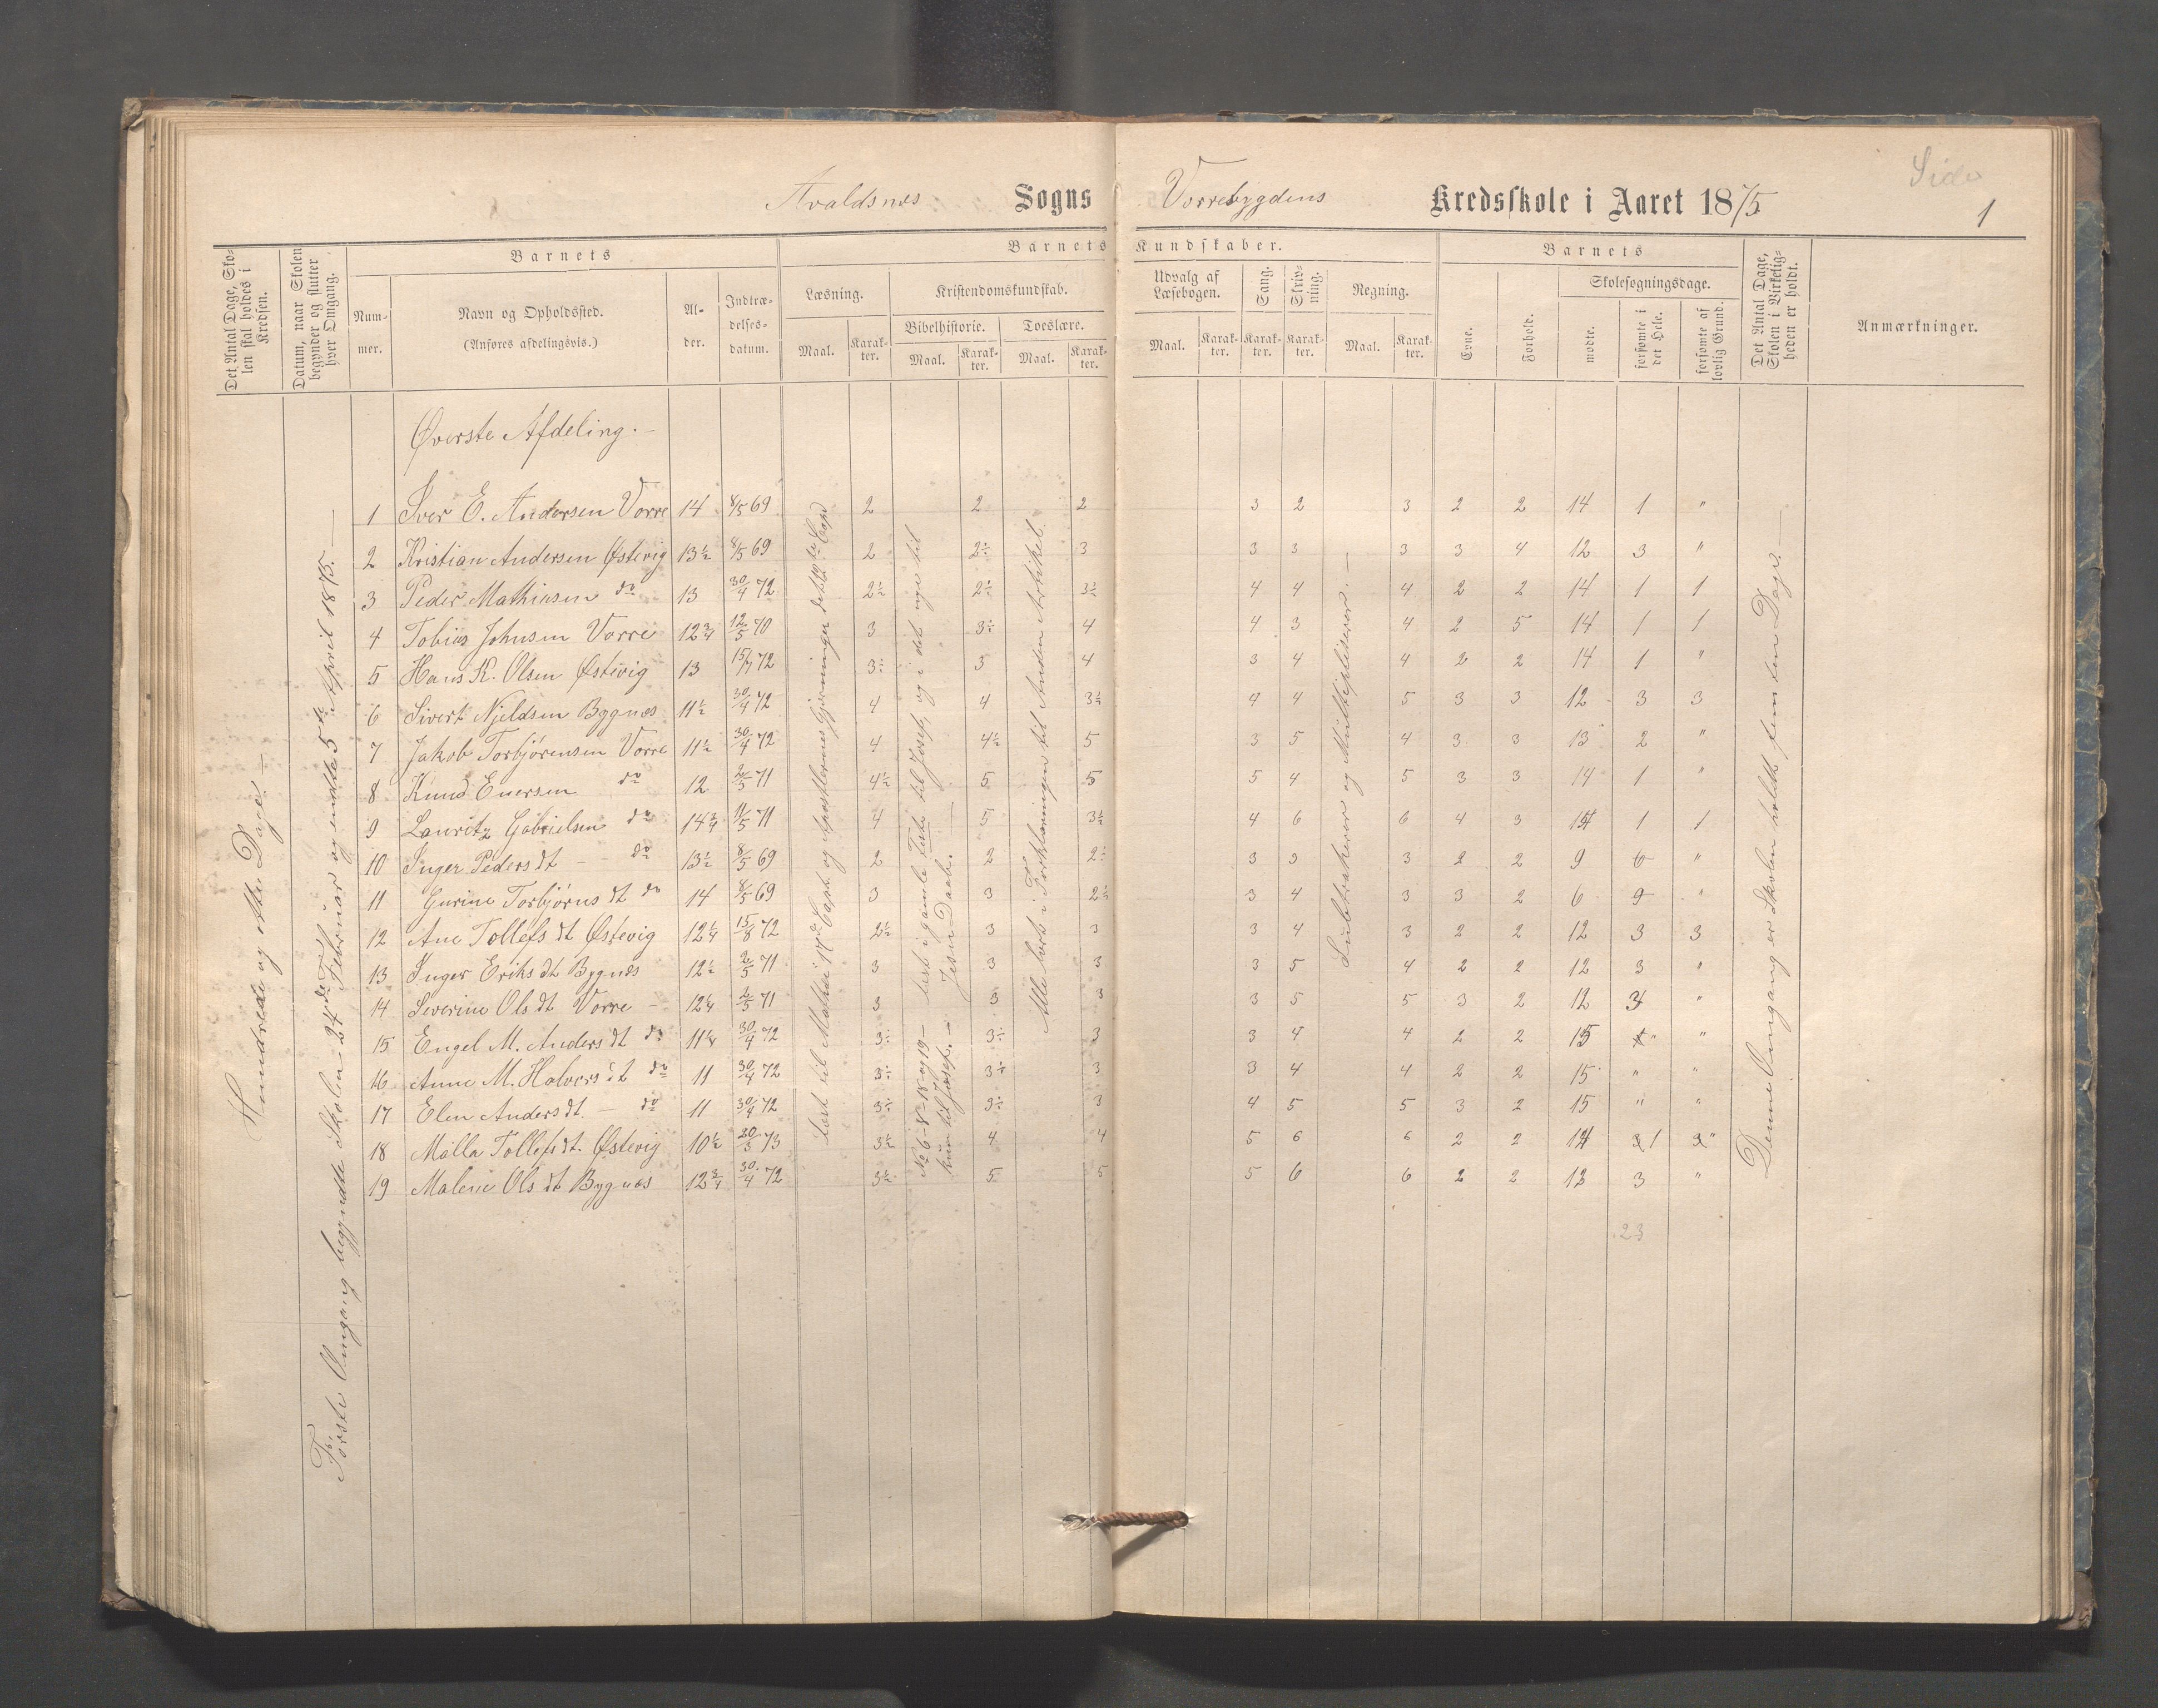 Side
1
Avaldsnes Sogns Vorrebygdens Kredsskole i Aaret 1875
Det Antal Dage, Skolen skal holdes i Kredsen.
Datum, naar Skolen begynder og slutter hver Omgang.
Barnets
Nummer.
Navn og Opholdssted.
(Anføres afdelingsvis.)
Alder.
Indtrædelsesdatum.
Barnets Kundskaber.
Læsning.
Maal. Karakter.
Kristendomskundskab.
Bibelhistorie.
Maal. Karakter.
Troeslære.
Maal. Karakter.
Udvalg af Læsebogen.
Maal. Karakter.
Sang.
Karakter.
Skrivning.
Karakter.
Regning.
Maal. Karakter.
Barnets
Evne.
Forhold.
Skolesøgningsdage.
mødte.
forsømte i det Hele.
forsømte af lovlig Grund.
Det Antal Dage, Skolen i Virkeligheden er holdt.
Anmærkninger.
Hundrede og otte Dage. —
Første Omgang begyndte Skolen 24de Februar og endte 5te April 1875. —
Øverste Afdeling. —
1 Iver E. Andersen Vorre 14 8/5 69 2 2 2 3 2 3 2 2 14 1 "
2 Kristian Andersen Østevig 13½ 8/5 69 2 2÷ 3 3 3 3 3 4 12 3 "
3 Peder Mathiasen do 13 30/4 72 2½ 2÷ 3½ 4 4 4 2 2 14 1 1
4 Tobias Johnsen Vorre 12¾ 12/5 70 3 3÷ 4 4 3 4 2 5 14 1 1
5 Hans K. Olsen Østevig 13 15/7 72 3÷ 3 4 3 4 4 2 2 14 1 "
6 Sivert Njeldsen Bygnes 11½ 30/4 72 4 4 3½ 4 4 5 3 3 12 3 3
7 Jakob Torbjørensen Vorre 11½ 30/4 72 4 4½ 5 3 5 4 3 3 13 2 "
8 Knud Enersen do 12 2/5 71 4½ 5 5 5 4 5 3 3 14 1 "
9 Lauritz Gabrielsen do 14¾ 11/5 71 4 5 3½ 4 6 6 4 3 14 1 1
10 Inger Pedersdt — do 13½ 8/5 69 2 2 2÷ 3 3 3 2 2 9 6 "
11 Gurine Torbjørnsdt do 14 8/5 69 3 3 2½ 3 4 3 3 2 6 9 "
12 Ane Tollefsdt Østevig 12¼ 15/8 72 2½ 3 3 3 4 3 2 2 12 3 3
13 Inger Eriksdt Bygnes 12½ 2/5 71 3 3 3 3 5 4 2 2 12 3 "
14 Severine Olsdt Vorre — 12¼ 2/5 71 3 3 3 3 5 5 3 2 12 3 "
15 Engel M. Andersdt do 11¼ 30/4 72 3÷ 3÷ 3 3 4 4 2 2 15 " "
16 Anne M. Halversdt do 11 30/4 72 3÷ 3÷ 3 3 4 4 2 2 15 " "
17 Elen Andersdt. — do 11 30/4 72 3÷ 3÷ 3 4 5 5 3 2 15 " "
18 Malla Tollefsdt. Østevig 10½ 20/3 73 3½ 4 4 5 6 6 2 2 14 1 "
19 Malene Olsdt Bygnes 12¾ 30/4 72 3½ 5 5 5 6 6 2 2 12 3 "
23
Læst til Mathæi 17de Capt. og Apostlernes Gjerninger detil 19de Cap
Læst i gamle Testa til Josef, og i det nye til Jesu Daab. —
No 6-8-18 og 19 — kun til Josef. —
Alle læst i Forklaringen til Anden Artikel
Subtraherer og Multipliserer. —
Denne Omgang er Skolen holdt femten Dage. —